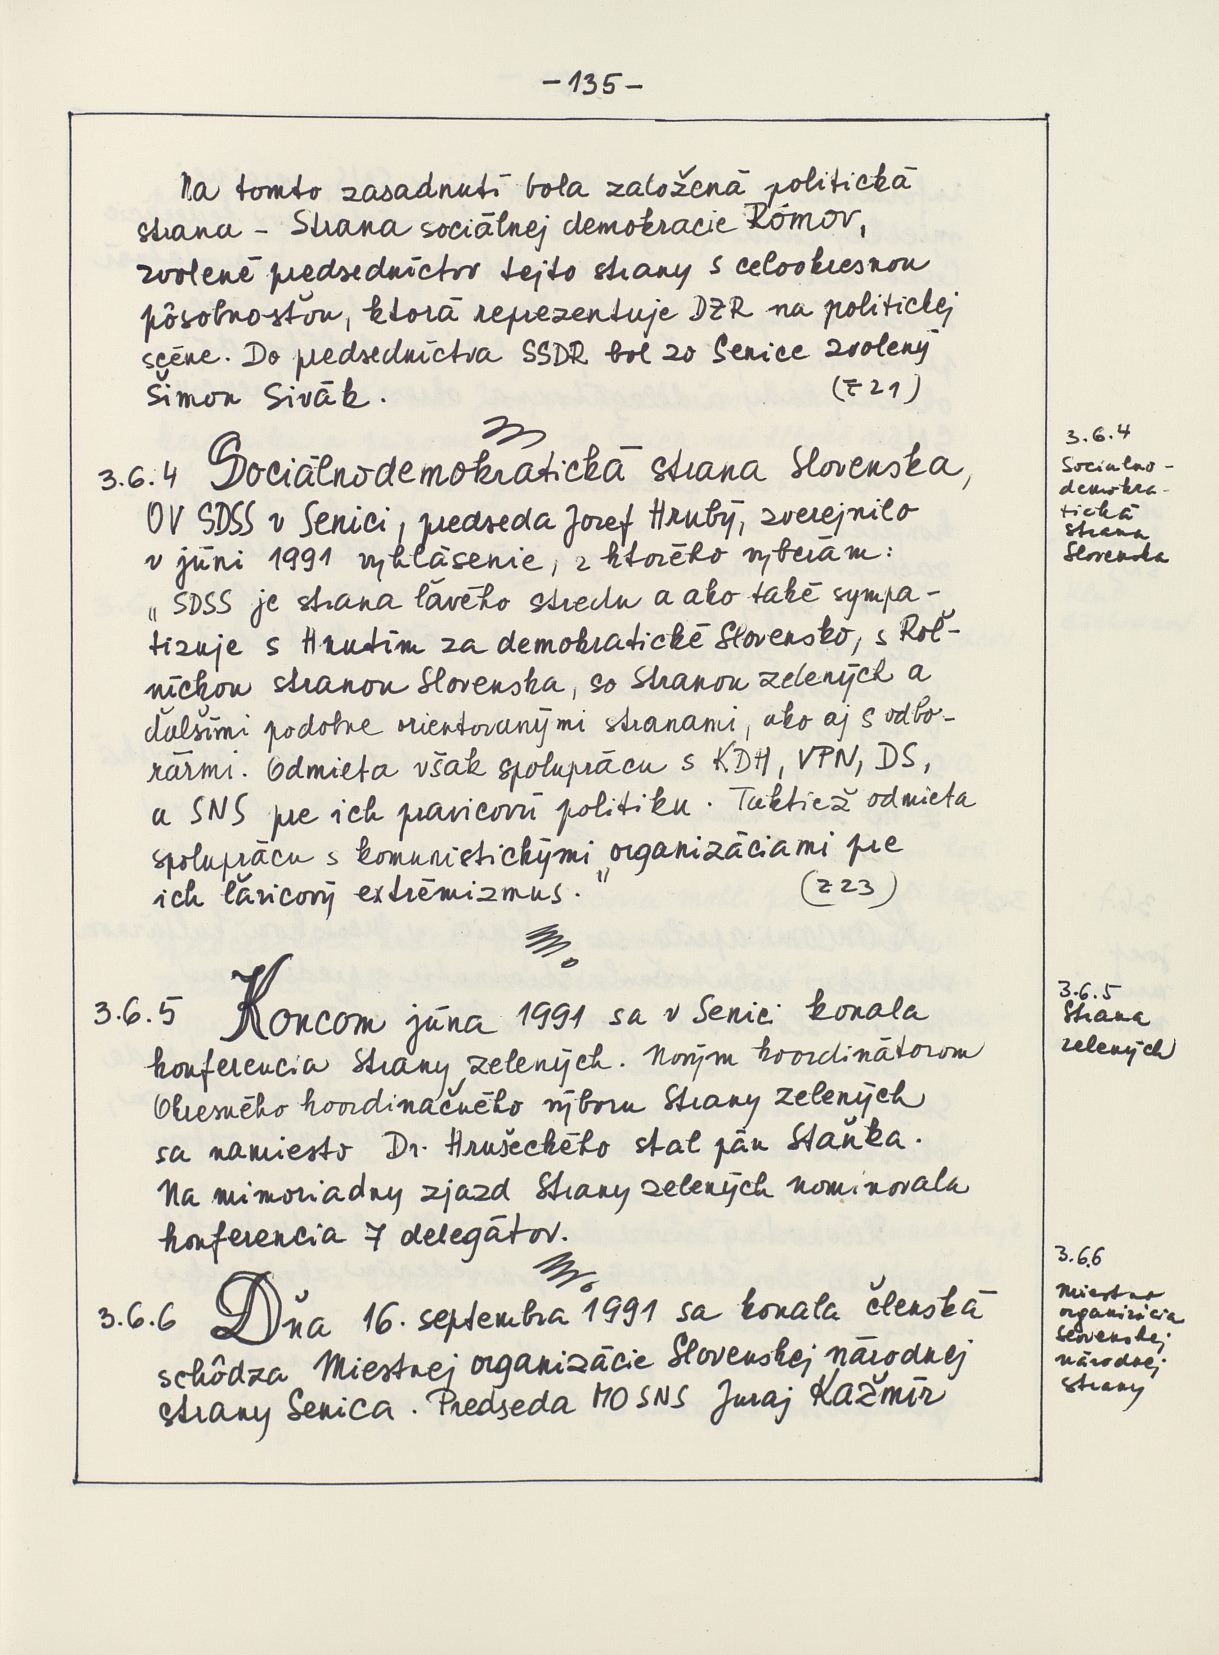 -135-
Na tomto zasadnutí bola založená politická
strana - Strana sociálnej demokracie Rómov,
zvolené predsedníctvo tejto strany s celookresnou
pôsobnosťou, ktorá reprezentuje DZR na politickej
scéne. Do predsedníctva SSDR bol zo Senice zvolený
Šimon Sivák. (Z 21)
3.6.4 Sociálnodemokratická strana Slovenska,
OV SDSS v Senici, predseda Jozef Hrubý, zverejnilo
v júni 1991 vyhlásenie, z ktorého vyberám:
„SDSS je strana ľavého stredu a ako také sympa-
tizuje s Hnutím za demokratické Slovensko, s Roľ-
níckou stranou Slovenska, so Stranou zelených a
ďalšími podobne orientovanými stranami, ako aj s odbo-
rármi. Odmieta však spoluprácu s KDH, VPN, DS,
a SNS pre ich pravicovú politiku. Taktiež odmieta
spoluprácu s komunistickými organizáciami pre
ich ľavicový extrémizmus." (Z 23)
3.6.5 Koncom júna 1991 sa v Senici konala
konferencia Strany zelených. Novým koordinátorom
Okresného koordinačného výboru Strany zelených
sa namiesto Dr. Hrušeckého stal pán Staňka.
Na mimoriadny zjazd Strany zelených nominovala
konferencia 7 delegátov.
3.6.6 Dňa 16. septembra 1991 sa konala členská
schôdza Miestnej organizácie Slovenskej národnej
strany Senica. Predseda MO SNS Juraj Kažmír
3.6.4
Socialno-
demokra-
tická
strana
Slovenska
3.6.5
Strana
zelených
3.6.6
Miestna
organizácia
Slovenskej
národnej
strany